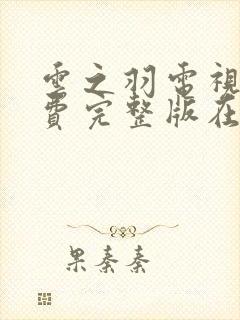 雲之羽電視
費完整版在
果秦秦